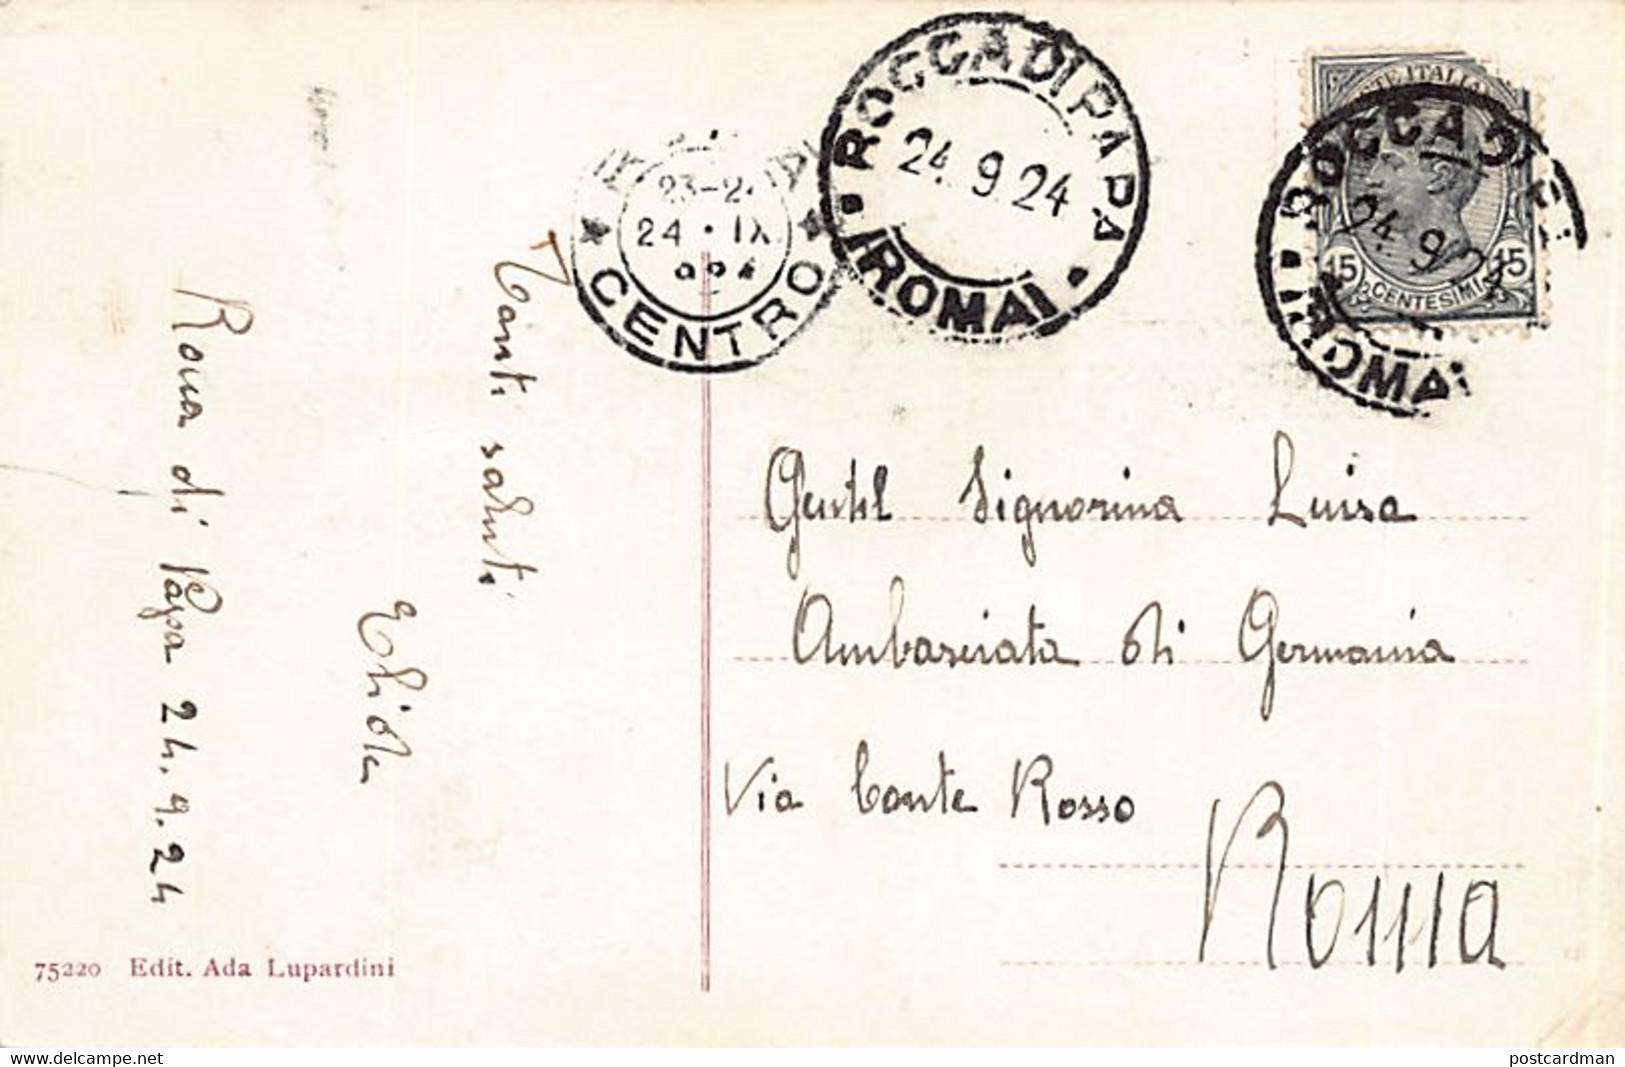 Tanti saluti
Roma di Papa 24.9.24
75220 Edit. Ada Lupardini
CENTRO
23-2
24 · IX
ROCCA DI PAPA
24.9.24
(ROMA)
POSTE ITALIANE
15 CENTESIMI 15
ROCCA DI
24.9.24
(ROMA
Gentil Signorina Luisa
Ambasciata di Germania
Via Conte Rosso
Roma
postcardman
www.delcampe.net